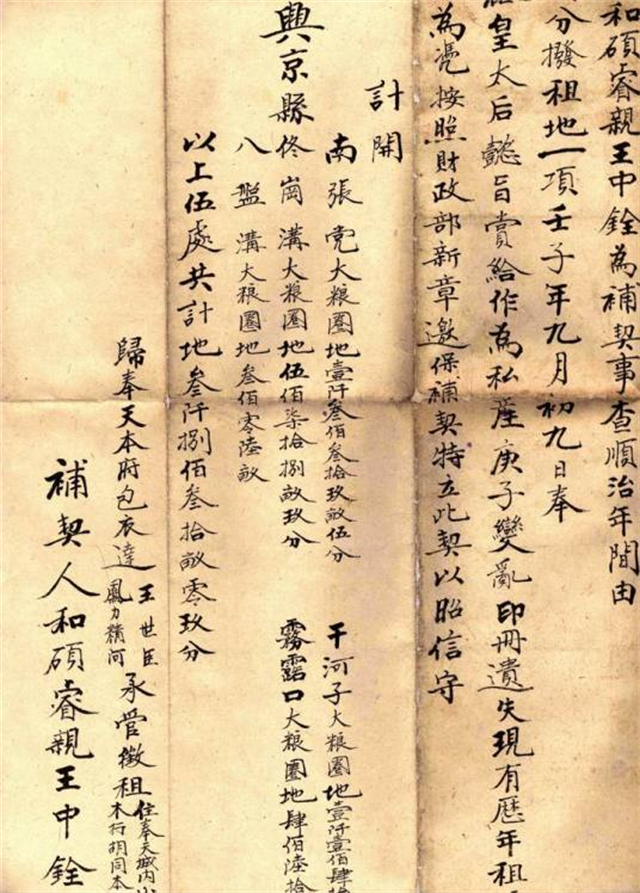 和碩睿親王中銓為補契事查順治年間由
分撥租地一項壬子年九月初九日奉
皇太后懿旨賞給作為私產庚子變亂印冊遺失現有歷年租
為凴按照財政部新章邀保補契特立此契以昭信守
計開
興京縣
南張党大粮圈地壹仟叁佰叁拾玖畝伍分
干河子大粮圈地壹仟壹佰肆拾
佟崗溝大粮圈地伍佰柒拾捌畝玖分
霧露口大粮圈地肆佰陸拾
八盤溝大粮圈地叁佰零陸畝
以上伍處共計地叁仟捌佰叁拾畝零玖分
歸奉天本府包衣達王世臣鳳力積河承管徵租住奉天城內小木行胡同本
補契人和碩睿親王中銓